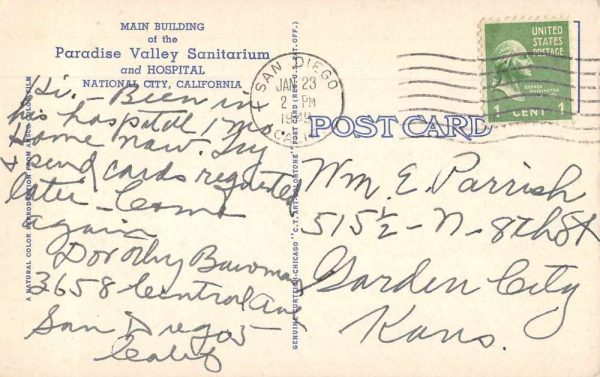 MAIN BUILDING
of the
Paradise Valley Sanitarium
and HOSPITAL
NATIONAL CITY, CALIFORNIA
Hi. - Been in
his hospital 1 mo
Home now. Try
& send cards requested
later - Come
again
Dorothy Bowman
3658 Central Av
San Diego 5
Calif
A NATURAL COLOR REPRODUCTION FROM
GENUINE CURTEICH-CHICAGO "C.T. ART-COLORTONE" POST CARD (REG. U.S. PAT. OFF.)
SAN DIEGO
JAN 23
2 PM
CALIF
UNITED
STATES
POSTAGE
GEORGE
WASHINGTON
1 CENT 1
POST CARD
Wm. E. Parrish
515½ - N - 8th St
Garden City
Kans.